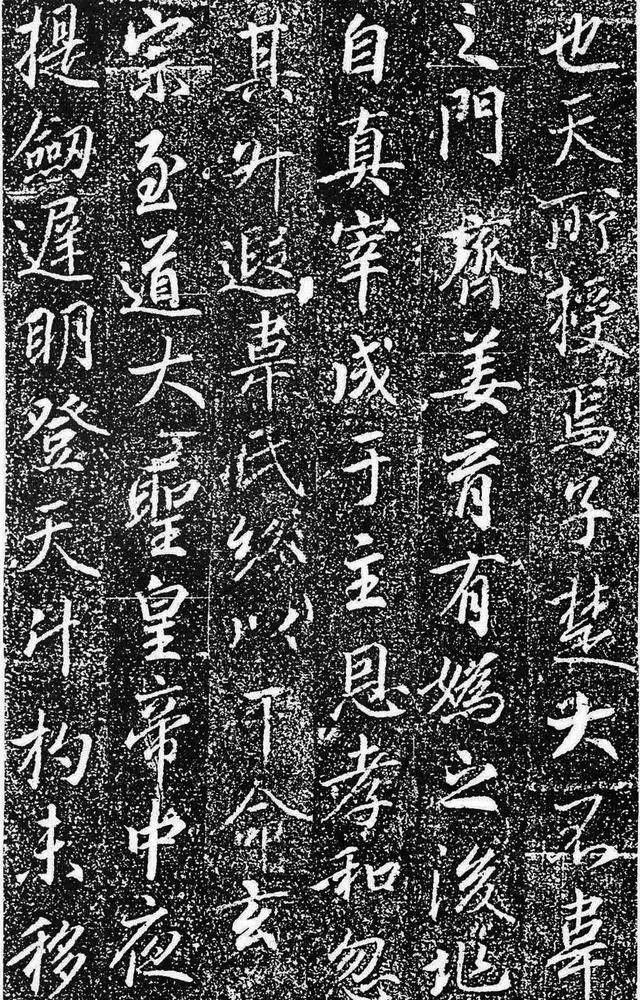 也天所授焉子楚大君韋
之門齊姜育有媯之後
自真宰成于主恩孝和忽
其升遐韋氏以下命玄
宗至道大聖皇帝中夜
提劔遲明登天斗杓未移